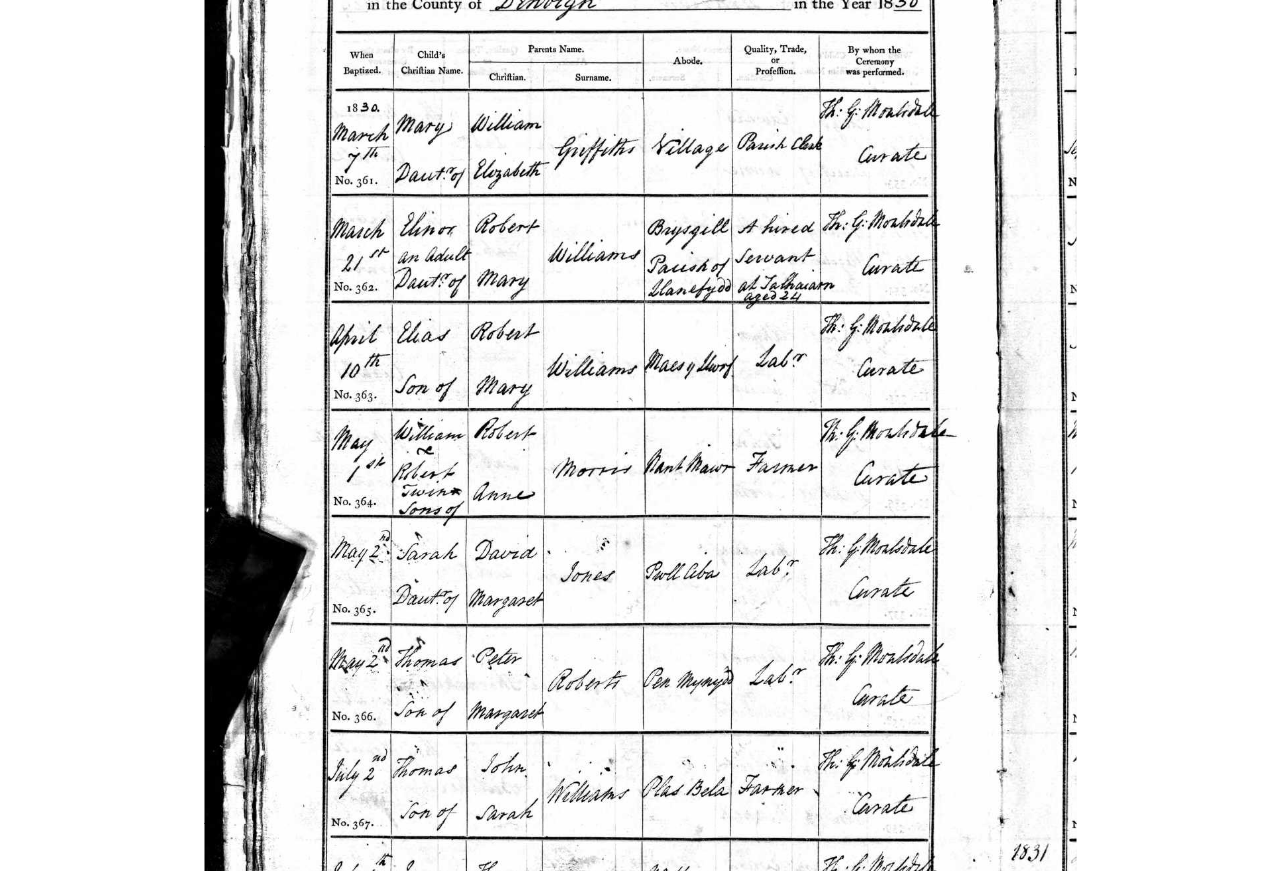 in the County of Denbigh in the Year 1830
When Baptized. Child's Christian Name. Parents Name. Abode. Quality, Trade, or Profession. By whom the Ceremony was performed.
Christian. Surname.
1830.
March 7th
No. 361.
Mary
Dautr. of
William
Elizabeth
Griffiths
Village
Parish Clerk
Th: G: Moulsdale
Curate
March 21st
No. 362.
Elinor
an Adult
Dautr. of
Robert
Mary
Williams
Brysgill
Parish of
Llanefydd
A hired
Servant
at Talhaiarn
aged 24
Th: G: Moulsdale
Curate
April 10th
No. 363.
Elias
Son of
Robert
Mary
Williams
Maes y
Labr.
Th: G: Moulsdale
Curate
May 1st
No. 364.
William
&
Robert
Twin
Sons of
Robert
Anne
Morris
Nant Mawr
Farmer
Th: G: Moulsdale
Curate
May 2nd
No. 365.
Sarah
Dautr. of
David
Margaret
Jones
Pwll
Labr.
Th: G: Moulsdale
Curate
May 2nd
No. 366.
Thomas
Son of
Peter
Margaret
Roberts
Pen Mynydd
Labr.
Th: G: Moulsdale
Curate
July 2nd
No. 367.
Thomas
Son of
John
Sarah
Williams
Plas Bela
Farmer
Th: G: Moulsdale
Curate
Th: G: Moulsdale
1831